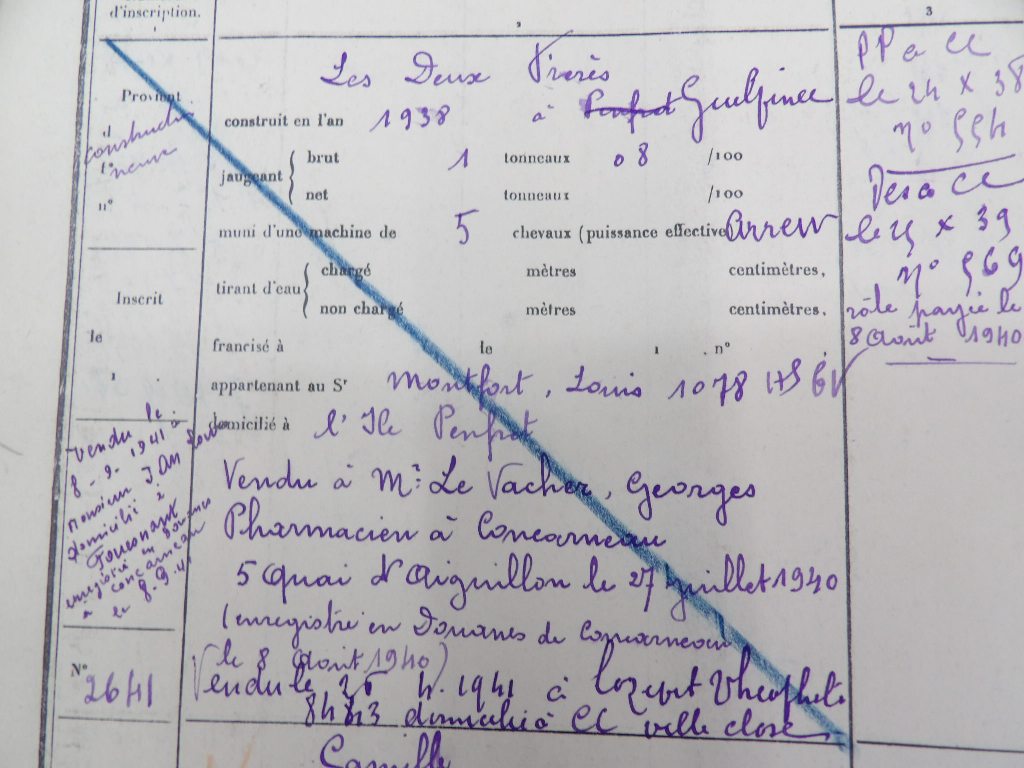 d'inscription.
1
2
3
Provient
d
construction
l°
neuve
n°
Inscrit
le
1
Vendu le
8 - 9. 1941 à
Monsieur J. An
domicilié à
Fouesnant
enregistré en Douanes
à Concarneau
le 8.9.41
N°
2641
Les Deux Frères
construit en l'an 1938 à Penfret
jaugeant brut 1 tonneaux 08 /100
net tonneaux /100
muni d'une machine de 5 chevaux (puissance effective
tirant d'eau chargé mètres centimètres.
non chargé mètres centimètres.
francisé à le 1 . n°
appartenant au Sr Montfort, Louis 1078
domicilié à l'Ile Penfret
Vendu à Mr Le Vacher, Georges
Pharmacien à Concarneau
5 Quai d'Aiguillon le 27 juillet 1940
(enregistré en Douanes de Concarneau
le 8 Août 1940)
Vendu le 26 4. 1941 à
8483 domicilié à CC ville close
Camille
PP à CC
le 24 X 38
n° 554
Des à CC
le X 39
n° 569
rôle payée le
8 Août 1940